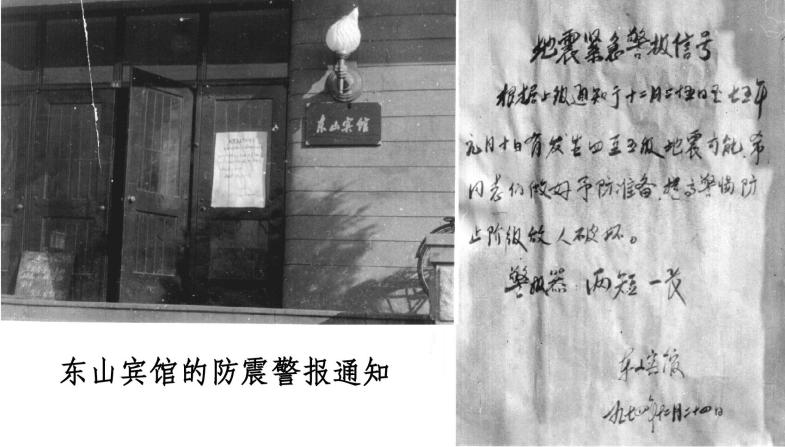 东山宾馆
东山宾馆的防震警报通知
地震紧急警报信号
根据上级通知于十二月二十五日至七五年
元月十日有发生四至五级地震可能,希
同志们做好予防准备,提高警惕防
止阶级敌人破坏。
警报器 两短一长
东山宾馆
一九七四年十二月二十四日